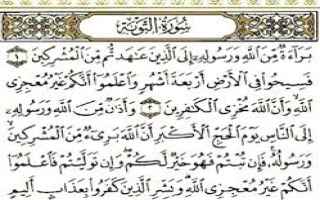 سُورَةُ التَّوْبَةِ
بَرَآءَةٌ مِّنَ اللَّهِ وَرَسُولِهِ إِلَى الَّذِينَ عَاهَدتُّم مِّنَ الْمُشْرِكِينَ ١
فَسِيحُوا فِي الْأَرْضِ أَرْبَعَةَ أَشْهُرٍ وَاعْلَمُوا أَنَّكُمْ غَيْرُ مُعْجِزِي
اللَّهِ وَأَنَّ اللَّهَ مُخْزِي الْكَافِرِينَ ٢ وَأَذَانٌ مِّنَ اللَّهِ وَرَسُولِهِ
إِلَى النَّاسِ يَوْمَ الْحَجِّ الْأَكْبَرِ أَنَّ اللَّهَ بَرِيءٌ مِّنَ الْمُشْرِكِينَ
وَرَسُولُهُ فَإِن تُبْتُمْ فَهُوَ خَيْرٌ لَّكُمْ وَإِن تَوَلَّيْتُمْ فَاعْلَمُوا
أَنَّكُمْ غَيْرُ مُعْجِزِي اللَّهِ وَبَشِّرِ الَّذِينَ كَفَرُوا بِعَذَابٍ أَلِيمٍ